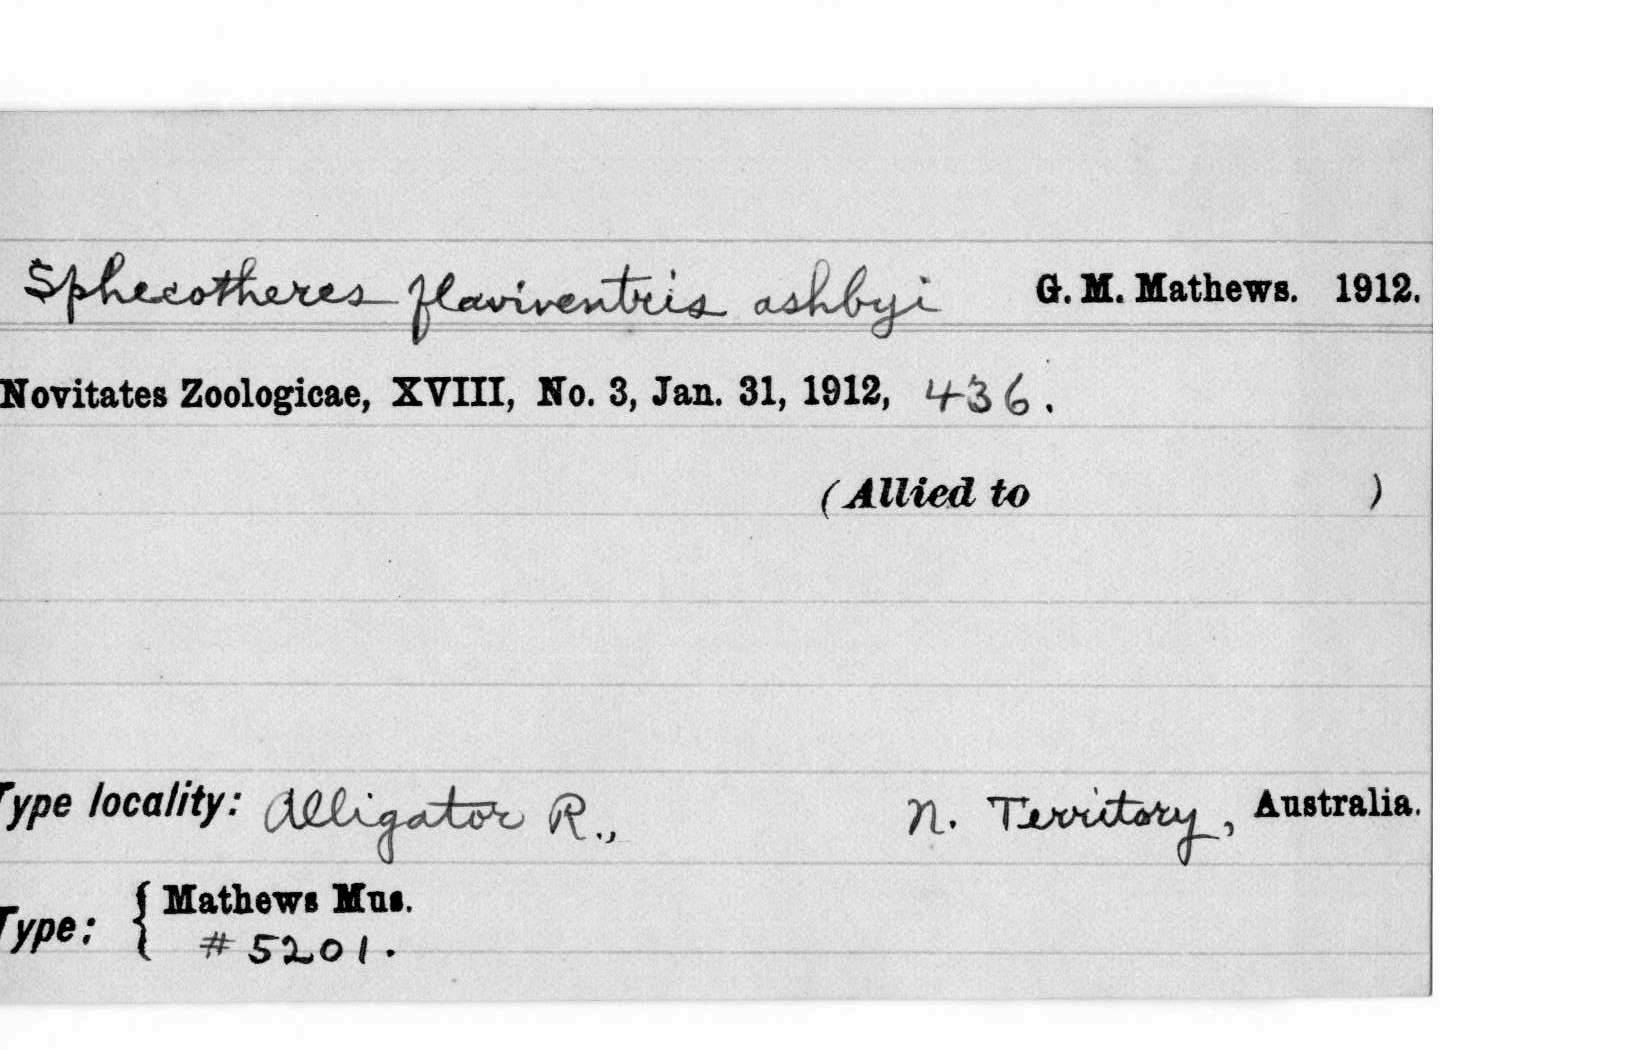 Sphecotheres flaviventris ashbyi G. M. Mathews. 1912.
Novitates Zoologicae, XVIII, No. 3, Jan. 31, 1912, 436.
(Allied to )
Type locality: Alligator R., N. Territory, Australia.
Type: { Mathews Mus.
# 5201.